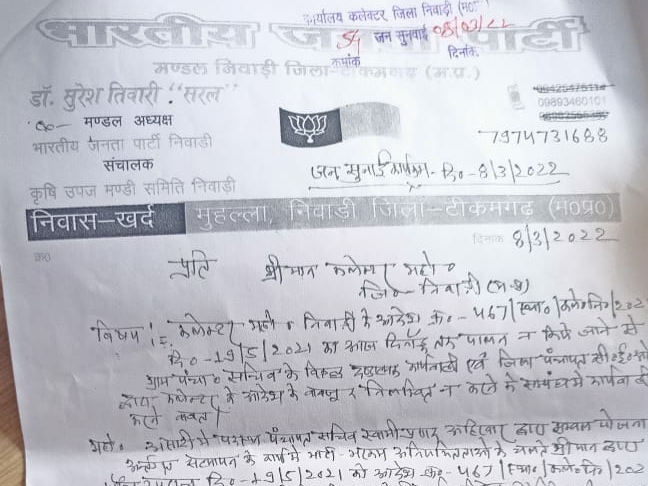 कार्यालय कलेक्टर, जिला निवाड़ी (म०प्र०)
54 जन सुनवाई 08/03/22
क्रमांक दिनांक
भारतीय जनता पार्टी
मण्डल निवाड़ी जिला-टीकमगढ़ (म.प्र.)
डॉ. सुरेश तिवारी "सरल"
मण्डल अध्यक्ष
भारतीय जनता पार्टी निवाड़ी
संचालक
कृषि उपज मण्डी समिति निवाड़ी
09893460101
7974731688
जन सुनवाई कार्यक्रम - दि०-8/3/2022
निवास-खर्द मुहल्ला, निवाड़ी जिला-टीकमगढ़ (म०प्र०)
दिनांक 8/3/2022
प्रति श्रीमान कलेक्टर महो०
जि०- निवाड़ी (म.प्र)
विषय :- कलेक्टर महो० निवाड़ी के आदेश क्र०-467/स्था०/कले०नि०/202
दि०-19/5/2021 का आज दिनाँक तक पालन न किये जाने से
ग्राम पंचा० सचिव के विरूद्ध दण्डात्मक कार्यवाही एवं जिला पंचायत सी०ई०ओ
द्वारा कलेक्टर के आदेश के बावजूद निलंबित न करने के सम्बंध में कार्यवाही
करने बावत।
महो० असाटी में पदस्थ पंचायत सचिव स्वामी प्रसाद अहिरवार द्वारा सम्बल योजना
अन्तर्गत सत्यापन के कार्य में भारी अनियमितताओं के चलते श्रीमान द्वारा
दि०-19/5/2021 को आदेश क्र०-467/स्था०/कले०नि०/202